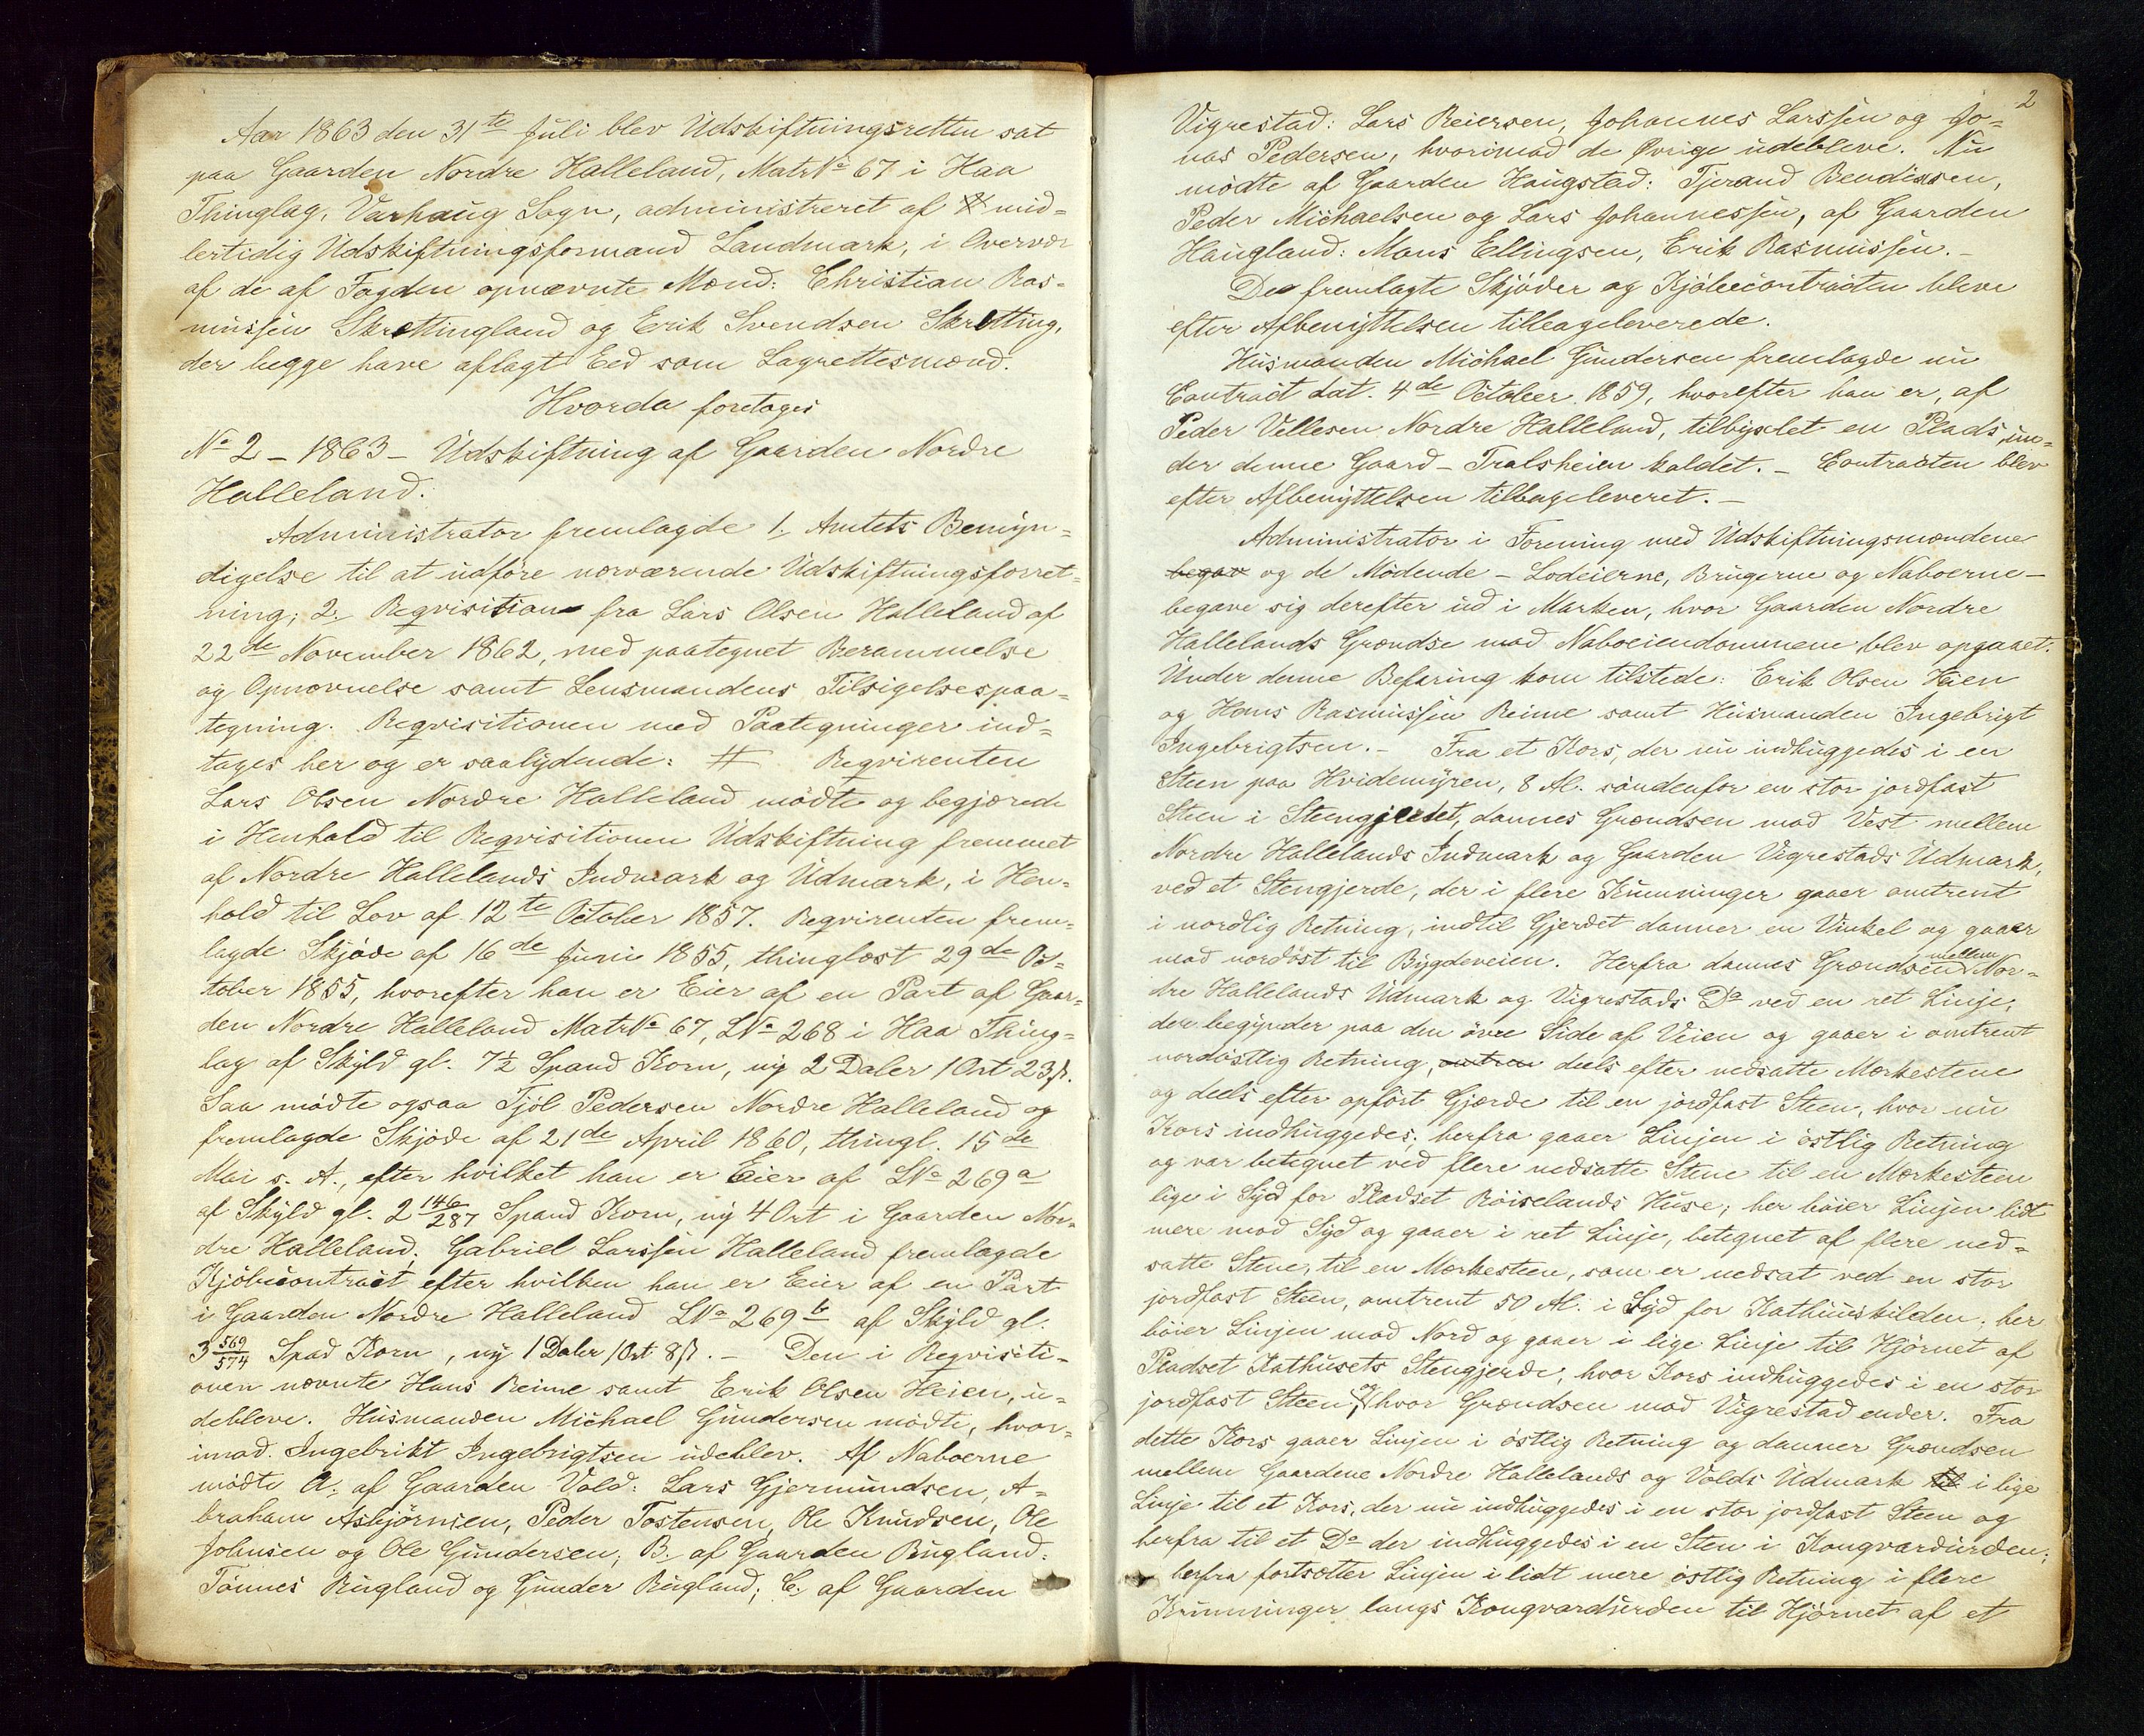 Aar 1863 den 31te Juli blev Udskiftningsretten sat
paa Gaarden Nordre Halleland, Matr No 67 i Haa
Thinglag, Varhaug Sogn, administreret af mid-
lertidig Udskiftningsformand Landmark, i Overvær
af de af Fogden opnævnte Mænd: Christian Ras-
mussen Skrettingland og Erik Svendsen Skretting,
der begge have aflagt Eed som Lagrettesmænd.
Hvorda foretages
No 2 – 1863 – Udskiftning af Gaarden Nordre
Halleland.
Administrator fremlagde 1. Amtets Bemyn-
digelse til at udføre nærværende Udskiftningsforret-
ning; 2. Reqvisition fra Lars Olsen Halleland af
22de November 1862, med paategnet Berammelse
og Opnævnelse samt Lensmandens Tilsigelsespaa-
tegning. Reqvisitionen med Paategninger ind-
tages her og er saalydende: # Reqvirenten
Lars Olsen Nordre Halleland mødte og begjærede
i Henhold til Reqvisitionen Udskiftning fremmet
af Nordre Hallelands Indmark og Udmark, i Hen-
hold til Lov af 12te October 1857. Reqvirenten frem-
lagde Skjøde af 16de Juni 1855, thinglæst 29de Oc-
tober 1855, hvorefter han er Eier af en Part af Gaar-
den Nordre Halleland Matr No 67, L No 268 i Haa Thing-
lag af Skyld gl. 7½ Spand Korn, ny 2 Daler 1 Ort 23 ß.
Saa mødte ogsaa Tjøl Pedersen Nordre Halleland og
fremlagde Skjøde af 21de April 1860, thingl. 15de
Mai s. A., efter hvilket han er Eier af L No 269a
af Skyld gl. 2 146/287 Spand Korn, ny 4 Ort i Gaarden Nor-
dre Halleland; Gabriel Larssen Halleland fremlagde
Kjøbecontract efter hvilken han er Eier af en Part
i Gaarden Nordre Halleland L No 269b af Skyld gl.
3 569/574 Spad Korn, ny 1 Daler 1 Ort 8 ß. – Den i Reqvisiti-
onen nævnte Hans Reime samt Erik Olsen Heien, u-
debleve. Husmanden Michael Gundersen mødte, hvor-
imod Ingebrikt Ingebrigtsen udeblev. Af Naboerne
mødte A. af Gaarden Vold: Lars Gjermundsen, A-
braham Asbjørnsen, Peder Tostensen, Ole Knudsen, Ole
Johnsen og Ole Gundersen; B. af Gaarden Rugland:
Tønnes Rugland og Gunder Rugland; C. af Gaarden
2
Vigrestad: Lars Reiersen, Johannes Larssen og Jo-
nas Pedersen, hvorimod de Øvrige udebleve. Nu
mødte af Gaarden Haugstad: Tjerand Bendixsen,
Peder Michaelsen og Lars Johannessen, af Gaarden
Haugland: Mons Ellingsen, Erik Rasmussen. –
De fremlagte Skjøder og Kjøbecontracten bleve
efter Afbenyttelsen tilbageleverede.
Husmanden Michael Gundersen fremlagde nu
Contract dat. 4de October 1859, hvorefter han er, af
Peder Vellesen Nordre Halleland, tilbyxlet en Plads un-
der denne Gaard – Tralsheien kaldet. – Contracten blev
efter Afbenyttelsen tilbageleveret. –
Administrator i Forening med Udskiftningsmændene
begav og de Mødende – Lodeierne, Brugerne og Naboerne –
begave sig derefter ud i Marken, hvor Gaarden Nordre
Hallelands Grændse mod Naboeiendommene blev opgaaet.
Under denne Befaring kom tilstede: Erik Olsen Heien
og Hans Rasmussen Reime samt Husmanden Ingebrigt
Ingebrigtsen. – Fra et Kors, der nu indhuggedes i en
Steen paa Hvidemyren, 8 Al. søndenfor en stor jordfast
Steen i Steengjerdet, dannes Grændsen mod Vest mellem
Nordre Hallelands Indmark og Gaarden Vigrestads Udmark,
ved et Stengjerde, der i flere Krumninger gaaer omtrent
i nordlig Retning, indtil Gjerdet danner en Vinkel og gaaer
mod nordøst til Bygdeveien. Herfra dannes Grændsen mellem Nor-
dre Hallelands Udmark og Vigrestads Do ved en ret Linje,
der begynder paa den øvre Side af Veien og gaaer i omtrent
nordøstlig Retning, omtren deels efter nedsatte Mærkestene
og deels efter opført Gjærde til en jordfast Steen, hvor nu
Kors indhuggedes; herfra gaaer Linjen i østlig Retning
og var betegnet ved flere nedsatte Stene til en Mærkesteen
lige i Syd for Pladset Røiselands Huse; her bøier Linjen lidt
mere mod Syd og gaaer i ret Linje, betegnet af flere ned-
satte Stene, til en Mærkesteen, som er nedsat ved en stor
jordfast Steen, omtrent 50 Al. i Syd for Kathuuskilden; her
bøier Linjen mod Nord og gaaer i lige Linje til Hjørnet af
Pladset Kathusets Stengjerde, hvor Kors indhuggedes i en stor
jordfast Steen, og hvor Grændsen mod Vigrestad ender. Fra
dette Kors gaaer Linjen i østlig Retning og danner Grændsen
mellem Gaardene Nordre Hallelands og Volds Udmark til i lige
Linje til et Kors, der nu indhuggedes i en stor jordfast Steen og
herfra til et Do der indhuggedes i en Sten i Kongvardurden;
herfra fortsætter Linjen i lidt mere østlig Retning i flere
Krumninger langs Kongvardurden til Hjørnet af et